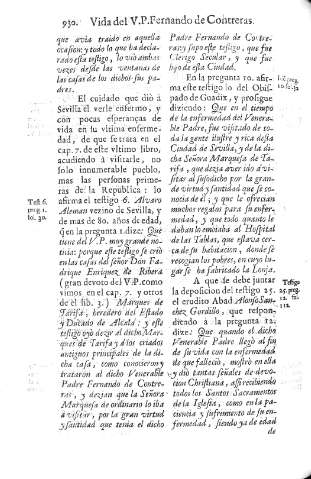 930. Vida del V.P. Fernando de Contreras.
que avia traido en aquella
ocasion: y todo lo que ha decla-
rado esta testigo, lo viò ambas
vezes desde las ventanas de
las casas de los dichos sus pa-
dres.
El cuidado que diò à
Sevilla el verle enfermo, y
con pocas esperanças de
vida en su vltima enferme-
dad, de que se trata en el
cap. 7. de este vltimo libro,
acudiendo à visitarle, no
solo innumerable pueblo,
mas las personas prime-
ras de la Republica: lo
afirma el testigo 6. Alvaro
Aleman vezino de Sevilla, y
de mas de 80. años de edad,
q en la pregunta 1. dize: Que
tiene del V.P. muy grande no-
ticia: porque este testigo se criò
en las casas del señor Don Fa-
drique Enriquez de Ribera
(gran devoto del V.P. como
vimos en el cap. 7. y otros
de el lib. 3.) Marques de
Tarifa, heredero del Estado
y Ducado de Alcalà: y este
testigo oyò dezir al dicho Mar-
ques de Tarifa y à los criados
antiguos principales de la di-
cha casa, como conocieron y
trataron al dicho Venerable
Padre Fernando de Contre-
ras, y dezian que la Señora
Marquesa de ordinario lo iba
à visitar, por la gran virtud
y santidad que tenia el dicho
Test. 6.
preg. 1.
fo. 30.
Padre Fernando de Contre-
ras; supo este testigo, que fue
Clerigo Secular, y que fue
hijo de esta Ciudad.
En la pregunta 10. afir-
ma este testigo lo del Obis-
pado de Guadix, y prosigue
diziendo: Que en el tiempo
de la enfermedad del Venerable
Padre, fue visitado de to-
da la gente ilustre y rica desta
Ciudad de Sevilla, y de la di-
cha Señora Marquesa de Ta-
rifa, que dezia aver ido à vi-
sitar al susodicho por la gran-
de virtud y santidad que se co-
nocia de èl; y que le ofrecian
muchos regalos para su enfer-
medad, y que todo quanto le
daban lo embiaba al Hospital
de las Tablas, que estava cer-
ca de su habitacion, donde se
recogian los pobres, en cuyo lu-
gar se ha fabricado la Lonja.
A que se debe juntar
la deposicion del testigo 25.
el erudito Abad Alonso San-
chez Gordillo, que respon-
diendo à la pregunta 12.
dize: Que quando el dicho
Venerable Padre llegò al fin
de su vida con la enfermedad
de que falleciò, mostrò en ella
y diò tantas señales de devo-
cion Christiana, assi recibiendo
todos los Santos Sacramentos
de la Iglesia, como en la pa-
ciencia y sufrimiento de su en-
fermedad, siendo ya de edad
de
Testigo
25. preg.
12. fo.
112.